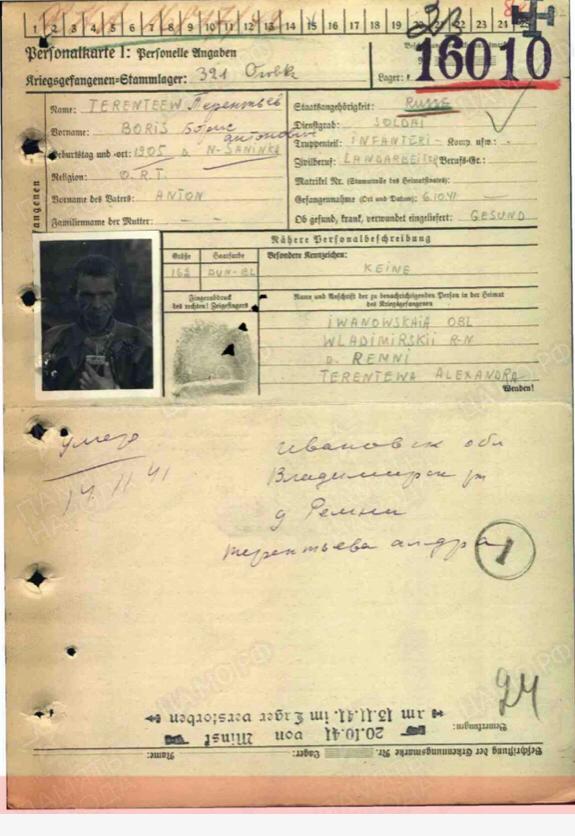 1 2 3 4 5 6 7 8 9 10 11 12 13 14 15 16 17 18 19 20 21 22 23 24 25
Personalkarte I: Personelle Angaben
Kriegsgefangenen-Stammlager: 321
Lager:
16010
Name: TERENTEEW Терентьев
Vorname: BORIS Борис антонович
Geburtstag und -ort: 1905 D. N-SANINKA
Religion: O.R.T.
Vorname des Vaters: ANTON
Familienname der Mutter: – –
Staatsangehörigkeit: RUSSE
Dienstgrad: SOLDAT
Truppenteil: INFANTERI - Komp. usw.: -
Zivilberuf: LANDARBEITER Berufs-Gr.:
Matrikel Nr. (Stammrolle des Heimatstaates):
Gefangennahme (Ort und Datum): 6.10.41
Ob gesund, krank, verwundet eingeliefert: GESUND
Nähere Personalbeschreibung
Größe Haarfarbe Besondere Kennzeichen:
162 DUN-BL KEINE
Fingerabdruck
des rechten! Zeigefingers
Name und Anschrift der zu benachrichtigenden Person in der Heimat
des Kriegsgefangenen
IWANOWSKAIA OBL
WLADIMIRSKII R-N
D. REMNI
TERENTEWA ALEXANDRA
Wenden!
умер
14 11 41
Ивановск обл
Владимирск рн
д Ремни
терентьева алдра
1
24
Bemerkungen:
am 15.11.41. im Lager verstorben
20.10.41 von Minsk
Beschriftung der Erkennungsmarke Nr. Lager: Name:
ПАМО.РФ